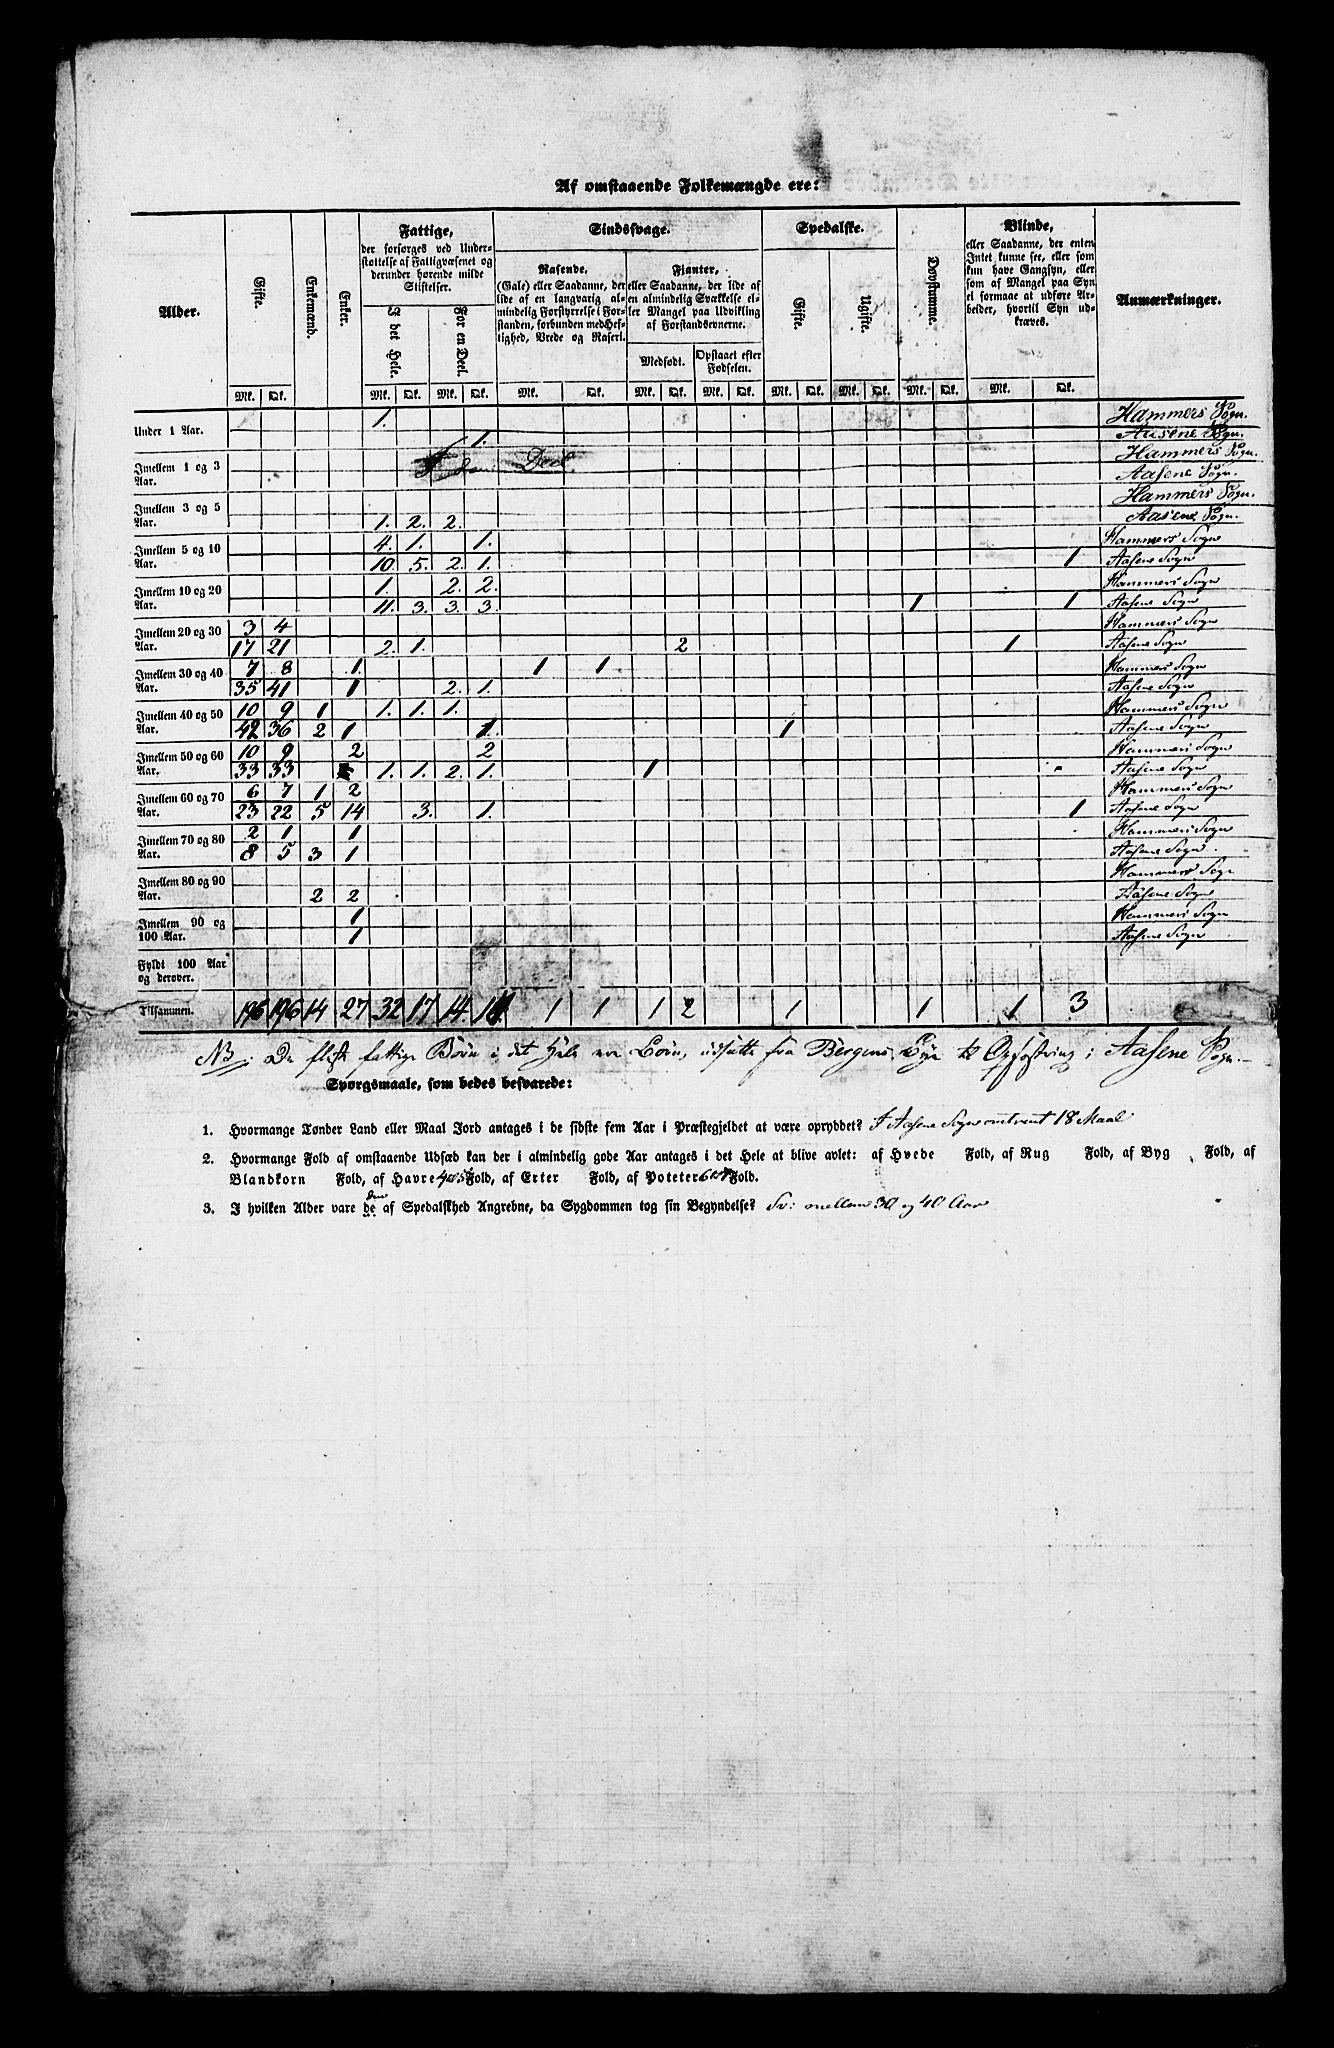 Af omstaaende Folkemængde ere:
Alder. Gifte. Enkemænd. Enker. Fattige, Sindssvage. Spedalske. Døvstumme. Blinde, Anmærkninger.
der forsørges ved Under-
støttelse af Fattigvæsenet og
derunder hørende milde
Stiftelser.
I det Hele. For en Deel.
Rasende,
(Gale) eller Saadanne, der
lide af en langvarig al-
mindelig Forstyrrelse i For-
standen, forbunden med Hef-
tighed, Vrede og Raseri.
Fjanter,
eller Saadanne, der lide af
en almindelig Svækkelse el-
ler Mangel paa Udvikling
af Forstandsevnerne.
Medfødt. Opstaaet efter
Fødselen.
Gifte. Ugifte.
eller Saadanne, der enten
Intet kunne see, eller som
kun have Gangsyn, eller
som af Mangel paa Syn
ei formaae at udføre Ar-
beider, hvortil Syn ud-
kræves.
Mk. Qk. Mk. Qk. Mk. Qk. Mk. Qk. Mk. Qk. Mk. Qk. Mk. Qk. Mk. Qk. Mk. Qk. Mk. Qk.
Under 1 Aar. 1. Hammers Sogn.
1. Aasene Sogn.
Imellem 1 og 3 Aar. Deel Hammers Sogn.
Aasene Sogn.
Imellem 3 og 5 Aar. Hammers Sogn.
1. 2. 2. Aasene Sogn.
Imellem 5 og 10 Aar. 4. 1. 1. Hammers Sogn
10 5. 2. 1. 1 Aasene Sogn
Imellem 10 og 20 Aar. 1. 2. 2. Hammers Sogn
11. 3. 3. 3 1 1 Aasene Sogn
Imellem 20 og 30 Aar. 3 4 Hammers Sogn
17 21 2. 1. 2 1 Aasene Sogn
Imellem 30 og 40 Aar. 7 8 1. 1 1 Hammers Sogn
35 41 1 2. 1. Aasene Sogn
Imellem 40 og 50 Aar. 10 9 1 1. 1. 1. Hammers Sogn
42 36 2 1 1. 1 Aasene Sogn
Imellem 50 og 60 Aar. 10 9 2 2 Hammers Sogn
33 33 1. 1. 2. 1. 1 Aasene Sogn
Imellem 60 og 70 Aar. 6 7 1 2 Hammers Sogn
23 22 5 14 3. 1. 1 Aasene Sogn
Imellem 70 og 80 Aar. 2 1 1 Hammers Sogn
8 5 3 1 Aasene Sogn
Imellem 80 og 90 Aar. Hammers Sogn
2 2 Aasene Sogn
Imellem 90 og 100 Aar. 1 Hammers Sogn
1 Aasene Sogn
Fyldt 100 Aar og derover.
Tilsammen. 196 196 14 27 32 17 14 1 1 1 2 1 1 1 3
NB: De fleste fattige Børn i det Hele ere Børn, udsatte fra Bergens Bye til Opfostring i Aasene Sogn.
Spørgsmaale, som bedes besvarede:
1. Hvormange Tønder Land eller Maal Jord antages i de sidste fem Aar i Præstegjeldet at være opryddet? I Aasene Sogn omtrent 18 Maal
2. Hvormange Fold af omstaaende Udsæd kan der i almindelig gode Aar antages i det Hele at blive avlet: af Hvede Fold, af Rug Fold, af Byg Fold, af
Blandkorn Fold, af Havre 4 a 5 Fold, af Erter Fold, af Poteter Fold.
3. I hvilken Alder vare de den af Spedalskhed Angrebne, da Sygdommen tog sin Begyndelse? Sv: mellem 30 og 40 Aar